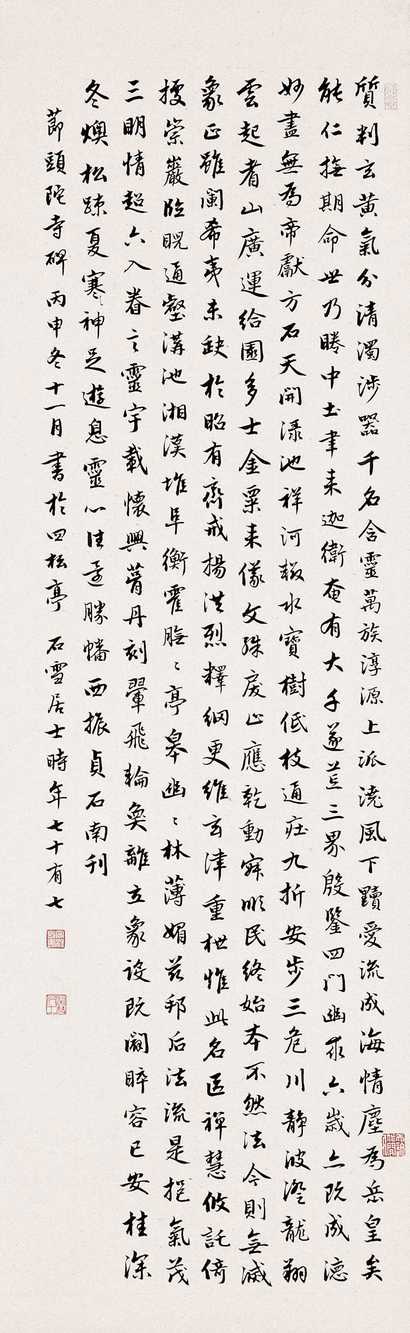 質判玄黃氣分清濁涉器千名含靈萬族淳源上派澆風下黷愛流成海情塵為岳皇矣
能仁撫期命世乃睠中土聿來迦衛奄有大千遂荒三界殷鑒四門幽求六歲亦既成德
妙盡無為帝獻方石天開淥池祥河輟水寶樹低枝通莊九折安步三危川靜波澄龍翔
雲起耆山廣運給園多士金粟來儀文殊戾止應乾動寂順民終始本不然法今則無滅
象正雖闌希夷未缺於昭有齊式揚洪烈釋網更維玄津重枻惟此名區禪慧攸託倚
據崇巖臨睨通壑溝池湘漢堆阜衡霍膴〻亭皋幽〻林薄媚茲邦后法流是挹氣茂
三明情超六入眷言靈宇載懷興葺丹刻翬飛輪奐離立象設既闢睟容已安桂深
冬燠松疎夏寒神足遊息靈心往還勝幡西振貞石南刊
節頭陀寺碑 丙申冬十一月書於四松亭 石雪居士時年七十有七